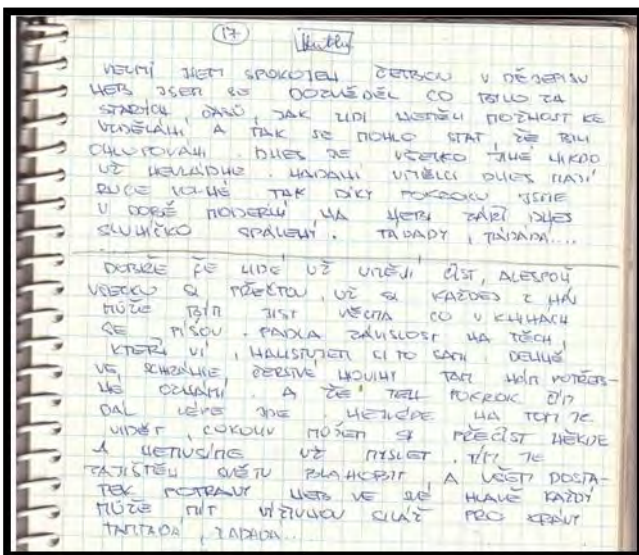 17
VELMI JSEM SPOKOJEN ČETBOU V DĚJEPISU
NEB JSEM SE DOZVĚDĚL CO BYLO ZA
STARÝCH ČASŮ, JAK LIDI NEMĚLI MOŽNOST KE
VZDĚLÁNÍ A TAK SE MOHLO STÁT, ŽE BYLI
OHLUPOVÁNI. DNES JE VŠECKO JINÉ NIKDO
UŽ NEVLÁDNE. NADANÍ UMĚLCI DNES MAJÍ
RUCE VOLNÉ TAK DÍKY POKROKU JSME
V DOBĚ MODERNÍ NA NEBI ZÁŘÍ DNES
SLUNÍČKO SPÁLENÝ. TADADY, TADADA....
DOBŘE ŽE LIDÉ UŽ UMĚJÍ ČÍST, ALESPOŇ
VŠECKO SI PŘEČTOU, UŽ SI KAŽDEJ Z NÁS
MŮŽE BÝT JIST VĚCMA CO V KNIHÁCH
SE PÍŠOU. PADLA ZÁVISLOST NA TĚCH,
KTEŘÍ VÍ, NALISTUJEM SI TO SAMI. DENNĚ
VE SCHRÁNCE ČERSTVÉ NOVINY TAM NÁM POTŘEB-
NÉ OZNÁMÍ. A ŽE TEN POKROK ČÍM
DÁL LÉPE JDE. NEJLÉPE NA TOM JE
VIDĚT, COKOLIV MŮŽEM SI PŘEČÍST NĚKDE
A NEMUSÍME UŽ MYSLET. TÍM JE
ZAJIŠTĚN SVĚTU BLAHOBYT, A VŠEM DOSTA-
TEK POTRAVY NEB VE SVÉ HLAVĚ KAŽDÝ
MŮŽE MÍT VÝŽIVNOU SILÁŽ PRO KRÁVY
TAMTADA, ZADADA...